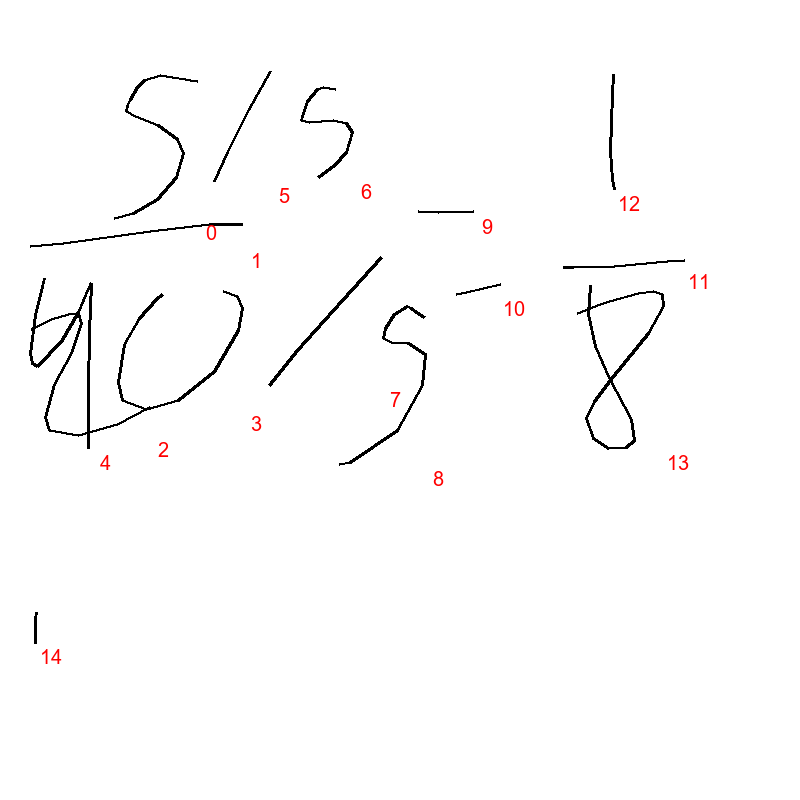 5/5
40/5
=
1
8
0
1
2
3
4
5
6
7
8
9
10
11
12
13
14